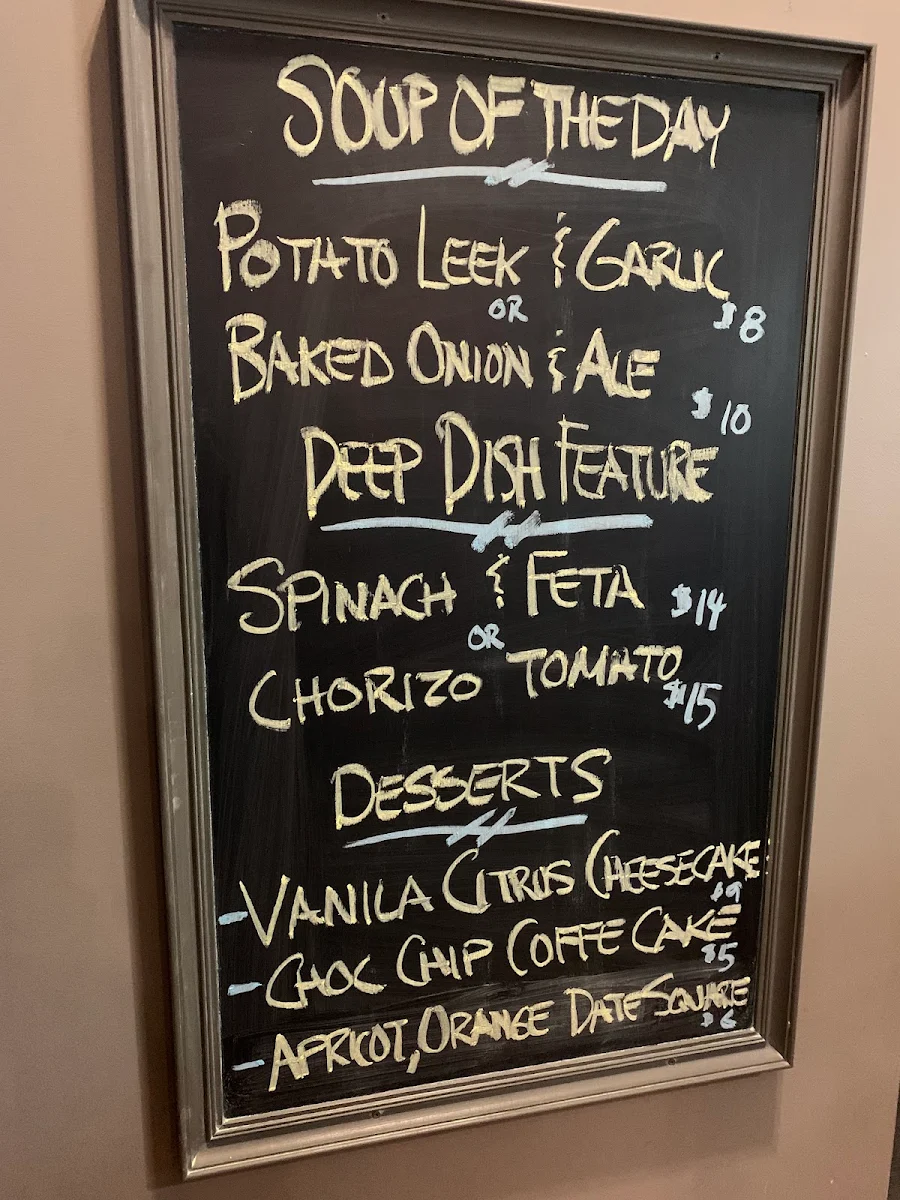 SOUP OF THE DAY
POTATO LEEK & GARLIC
$8
OR
BAKED ONION & ALE
$10
DEEP DISH FEATURE
SPINACH & FETA $14
OR
CHORIZO TOMATO
$15
DESSERTS
- VANILA CITRUS CHEESECAKE
$9
- CHOC CHIP COFFE CAKE
$5
- APRICOT, ORANGE DATE SQUARE
$6